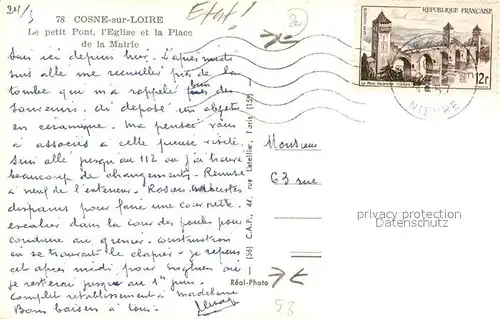 24/5
Etat!
78 COSNE-sur-LOIRE
Le petit Pont, l'Eglise et la Place
de la Mairie
Suis ici depuis hier. L'après midi
suis allé me recueillir près de la
tombe qui m'a rappelé bien des
souvenirs. Ai déposé un objet
en céramique. Ma pensée vous
a associés à cette pieuse visite
Suis allé jusqu'au 112 où j'ai trouvé
beaucoup de changements. Remise
à neuf de l'extérieur. Rosiers
disparus pour faire une courette.
escalier dans la cour des poules pour
conduire au grenier. construction
où se trouvait le clapier. Je repars
cet après midi pour où
je resterai jusqu'au 1er juin.
Complet rétablissement à Madeleine
Bons baisers à tous.
[56] C.A.P., 44, rue Letellier, Paris (15e)
Réal-Photo
REPUBLIQUE FRANÇAISE
POSTES
12f
NIEVRE
Monsieur
63 rue
privacy protection
Datenschutz
58